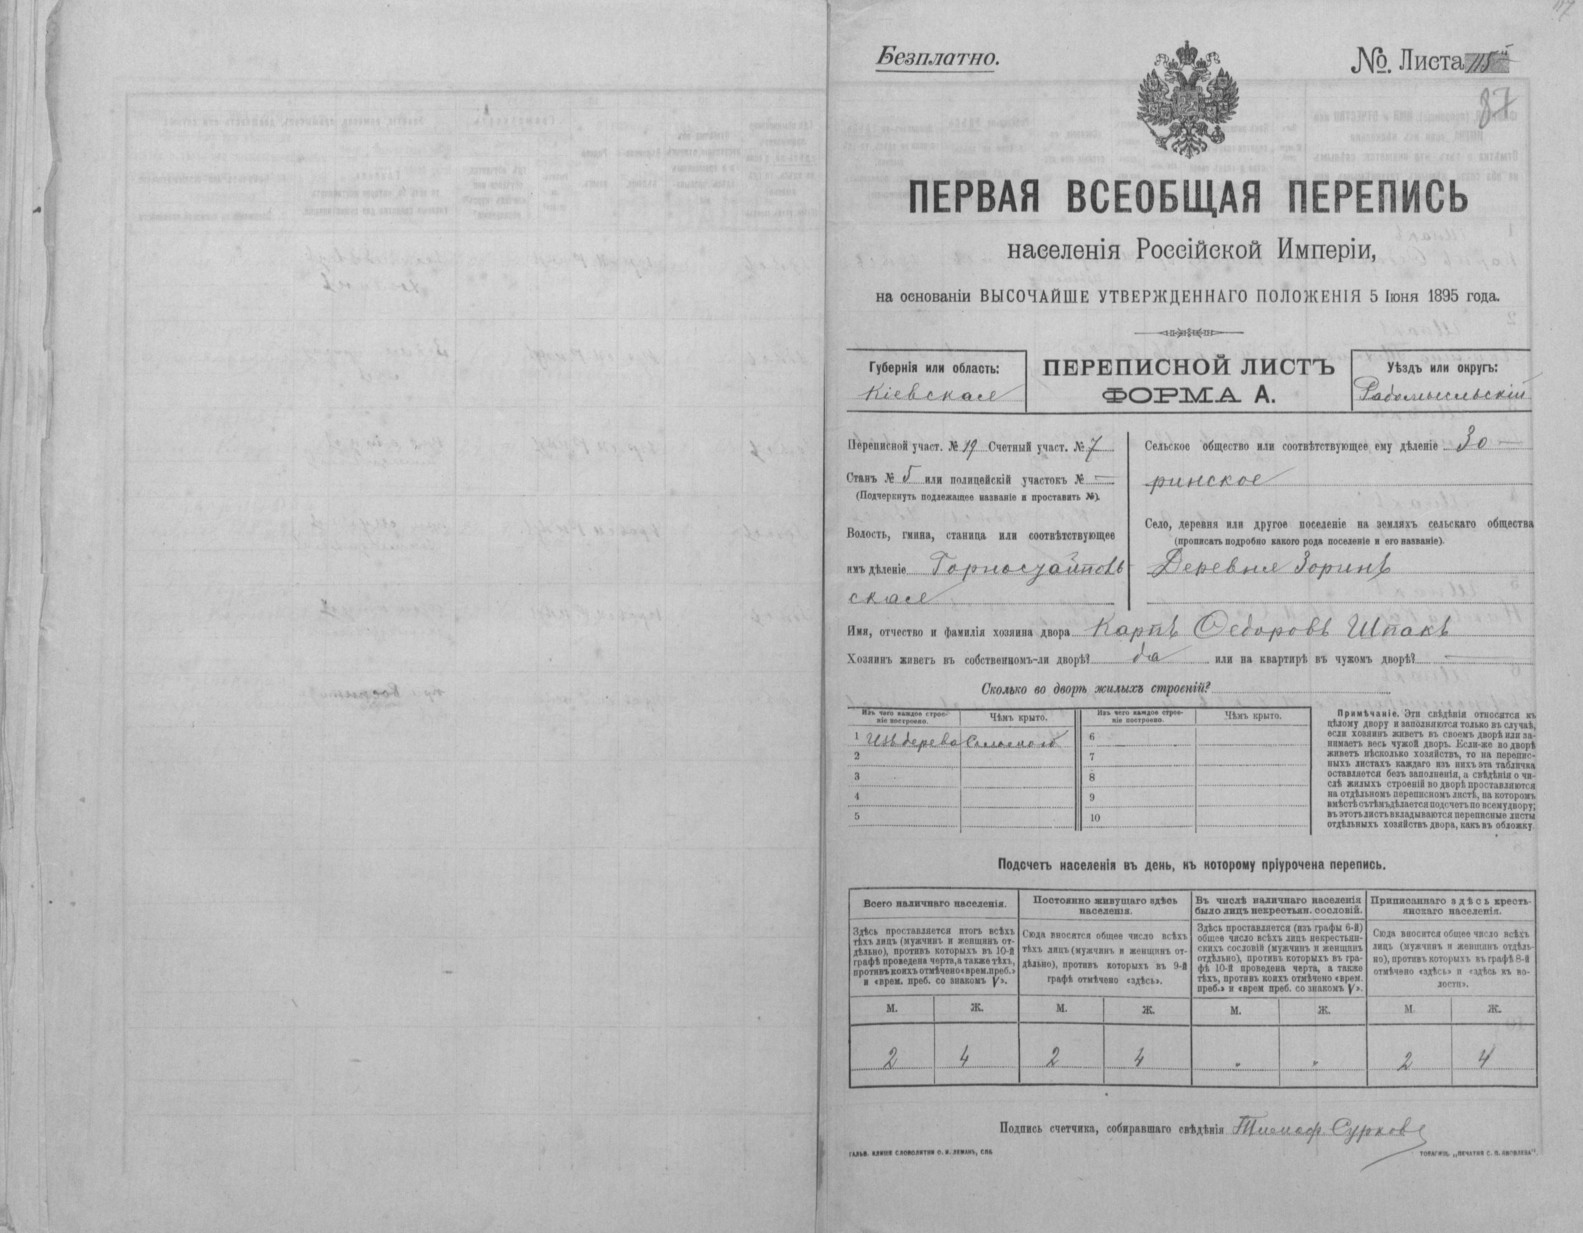 117
Безплатно.
№. Листа 115й
87
ПЕРВАЯ ВСЕОБЩАЯ ПЕРЕПИСЬ
населенія Россійской Имперіи,
на основаніи ВЫСОЧАЙШЕ УТВЕРЖДЕННАГО ПОЛОЖЕНІЯ 5 Іюня 1895 года.
Губернія или область:
Кіевская
ПЕРЕПИСНОЙ ЛИСТЪ
ФОРМА А.
Уѣздъ или округъ:
Радомысльскій
Переписной участ. № 19 Счетный участ. № 7
Станъ № 5 или полицейскій участокъ № —
(Подчеркнуть подлежащее названіе и проставить №).
Волость, гмина, станица или соотвѣтствующее
имъ дѣленіе Горностайпов
ская
Сельское общество или соотвѣтствующее ему дѣленіе Зо—
ринское
Село, деревня или другое поселеніе на земляхъ сельскаго общества
(прописать подробно какого рода поселеніе и его названіе).
Деревня Зоринъ
Имя, отчество и фамилія хозяина двора Карпъ Ѳедоровъ Шпакъ
Хозяинъ живетъ въ собственномъ-ли дворѣ? да или на квартирѣ въ чужомъ дворѣ? —
Сколько во дворѣ жилыхъ строеній?
Изъ чего каждое строеніе построено.
Чѣмъ крыто.
Изъ чего каждое строеніе построено.
Чѣмъ крыто.
1 Изъ дерева Соломою 6
2 7
3 8
4 9
5 10
Примѣчаніе. Эти свѣдѣнія относятся къ
цѣлому двору и заполняются только въ случаѣ,
если хозяинъ живетъ въ своемъ дворѣ или за-
нимаетъ весь чужой дворъ. Если-же во дворѣ
живетъ нѣсколько хозяйствъ, то на перепис-
ныхъ листахъ каждаго изъ нихъ эта табличка
оставляется безъ заполненія, а свѣдѣнія о чи-
слѣ жилыхъ строеній во дворѣ проставляются
на отдѣльномъ переписномъ листѣ, на которомъ
вмѣстѣ съ тѣмъ дѣлается подсчетъ по всему двору;
въ этотъ листъ вкладываются переписные листы
отдѣльныхъ хозяйствъ двора, какъ въ обложку.
Подсчетъ населенія въ день, къ которому пріурочена перепись.
Всего наличнаго населенія.
Здѣсь проставляется итогъ всѣхъ
тѣхъ лицъ (мужчинъ и женщинъ от-
дѣльно), противъ которыхъ въ 10-й
графѣ проведена черта, а также тѣхъ,
противъ коихъ отмѣчено «врем. преб.»
и «врем. преб. со знакомъ V».
Постоянно живущаго здѣсь
населенія.
Сюда вносится общее число всѣхъ
тѣхъ лицъ (мужчинъ и женщинъ от-
дѣльно), противъ которыхъ въ 9-й
графѣ отмѣчено «здѣсь».
Въ числѣ наличнаго населенія
было лицъ некрестьян. сословій.
Здѣсь проставляется (изъ графы 6-й)
общее число всѣхъ лицъ некрестьян-
скихъ сословій (мужчинъ и женщинъ
отдѣльно), противъ которыхъ въ гра-
фѣ 10-й проведена черта, а также
тѣхъ, противъ коихъ отмѣчено «врем.
преб.» и «врем преб. со знакомъ V».
Приписаннаго здѣсь кресть-
янскаго населенія.
Сюда вносится общее число всѣхъ
лицъ (мужчинъ и женщинъ отдѣль-
но), противъ которыхъ въ графѣ 8-й
отмѣчено «здѣсь» и «здѣсь въ во-
лости».
М. Ж. М. Ж. М. Ж. М. Ж.
2 4 2 4 . . 2 4
Подпись счетчика, собиравшаго свѣдѣнія Тимоф. Сурков
ГАЛЬВ. КЛИШЕ СЛОВОЛИТНИ О. И. ЛЕМАНЪ, СПБ.
ТОВАРИЩ. „ПЕЧАТНЯ С. П. ЯКОВЛЕВА".